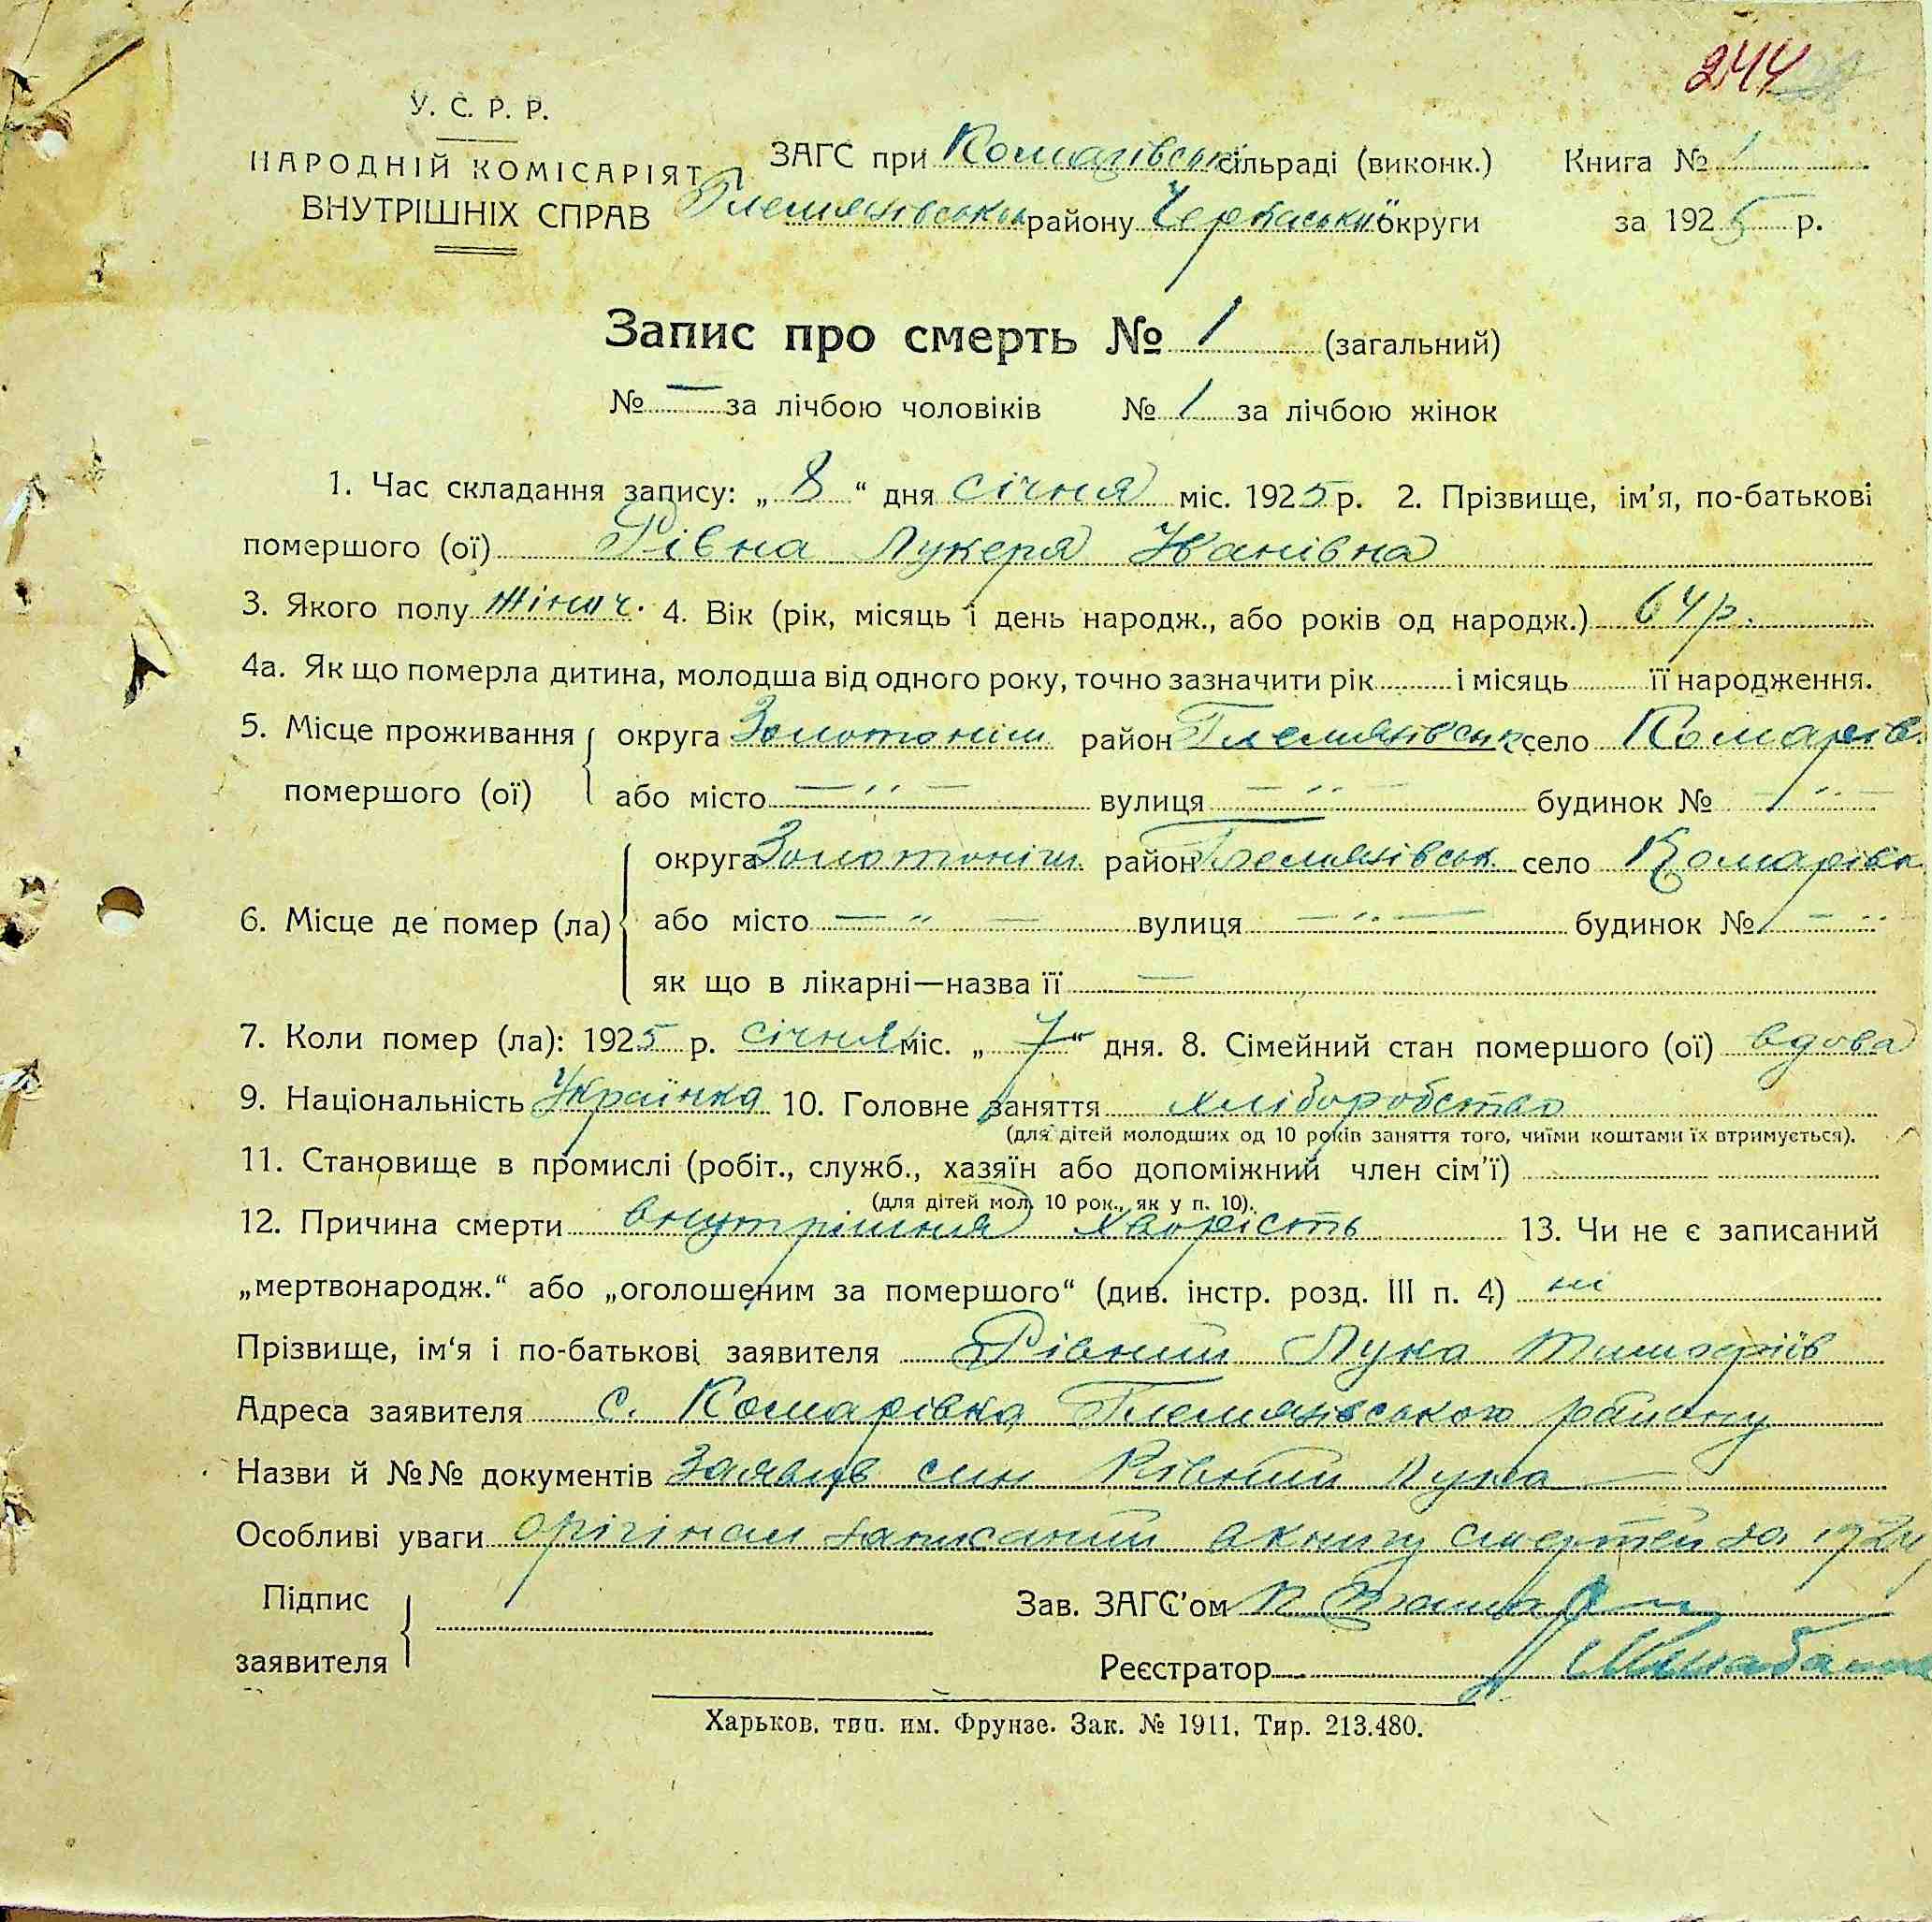 244
У. С. Р. Р.
НАРОДНІЙ КОМІСАРІЯТ
ВНУТРІШНІХ СПРАВ
ЗАГС при Комарівській сільраді (виконк.) Книга № 1
району Черкаської округи за 1925 р.
Запис про смерть № 1 (загальний)
№ — за лічбою чоловіків № 1 за лічбою жінок
1. Час складання запису: „ 8 “ дня січня міс. 1925 р. 2. Прізвище, ім’я, по-батькові
помершого (ої) Рівна Лукеря Іванівна
3. Якого полу жіноч. 4. Вік (рік, місяць і день народж., або років од народж.) 64 р.
4а. Як що померла дитина, молодша від одного року, точно зазначити рік і місяць її народження.
5. Місце проживання помершого (ої) округа Золотоніш. район село Комарів.
або місто — „ — вулиця — „ — будинок № — „ —
6. Місце де помер (ла) округа Золотоніш. район село Комарівка
або місто — „ — вулиця — „ — будинок № — „
як що в лікарні—назва її —
7. Коли помер (ла): 1925 р. січня міс. „ 7 “ дня. 8. Сімейний стан помершого (ої) вдова
9. Національність Українка 10. Головне заняття хліборобство
(для дітей молодших од 10 років заняття того, чиїми коштами їх втримується).
11. Становище в промислі (робіт., служб., хазяїн або допоміжний член сім’ї)
(для дітей мол. 10 рок., як у п. 10).
12. Причина смерти внутрішня хворість 13. Чи не є записаний
„мертвонародж.“ або „оголошеним за помершого“ (див. інстр. розд. III п. 4) ні
Прізвище, ім‘я і по-батькові заявителя Рівний Лука Тимофіїв
Адреса заявителя с. Комарівка району
Назви й №№ документів заявив син Рівний Лука
Особливі уваги орігінал записаний в книгу смертей за 1924
Підпис заявителя
Зав. ЗАГС’ом
Реєстратор
Харьков, тип. им. Фрунзе. Зак. № 1911, Тир. 213.480.